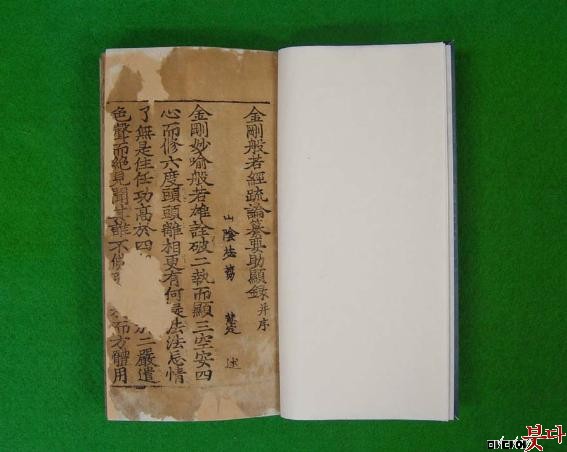 金剛般若經疏論纂要助顯錄并序
山陰 述
金剛妙喻般若雄詮破二執而顯三空安四
心而修六度頭頭離相更有何是法法忘情
了無是住任功高於四 二嚴遣
色聲而絕見聞 誰不佛 方體用
미디어붓다